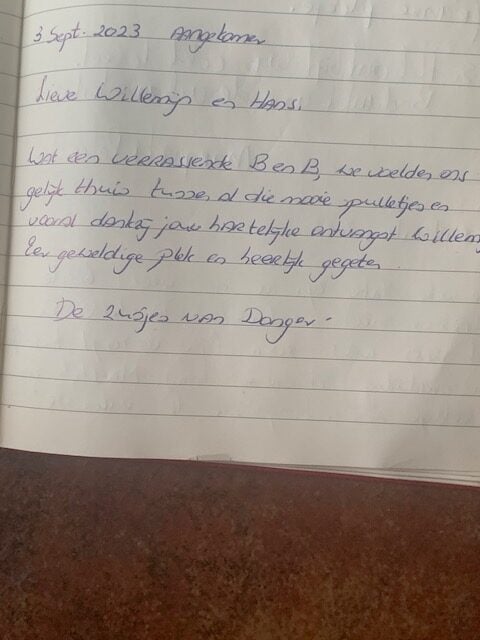 3 Sept. 2023 Aangekomen
Lieve Willemijn en Hans,
Wat een verrassende B en B, we voelden ons
gelijk thuis tussen al die mooie spulletjes en
vooral dankzij jouw hartelijke ontvangst Willemij
Een geweldige plek en heerlijk gegeten.
De zusjes van Dongen.